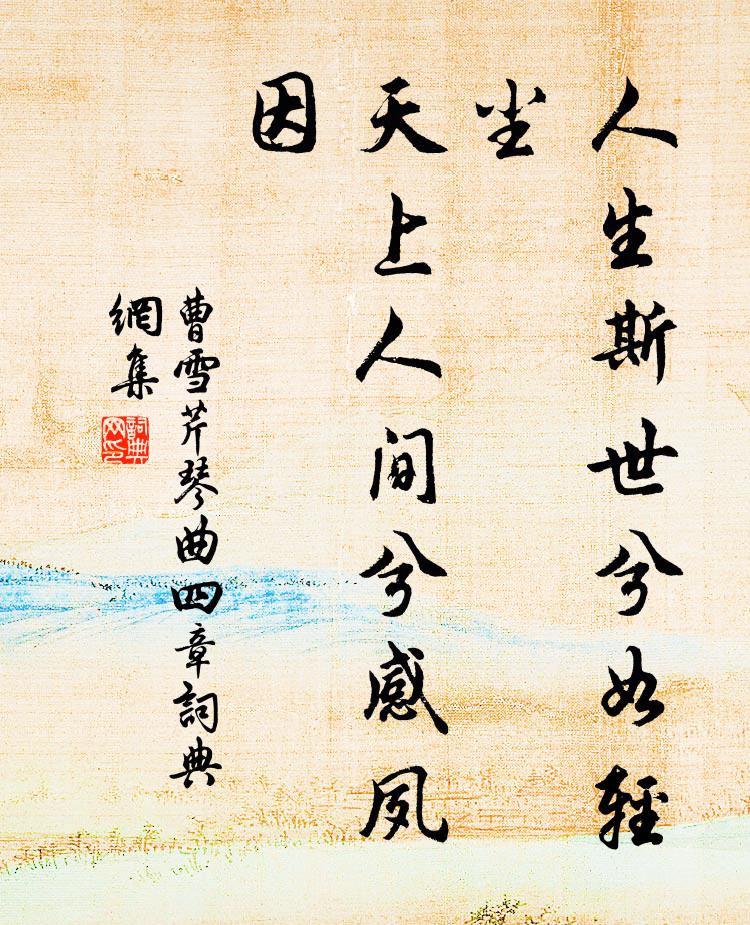 人生斯世兮如輕
尘
天上人间兮感夙
因
曹雪芹琴曲四章詞典
網集
詞典
网印